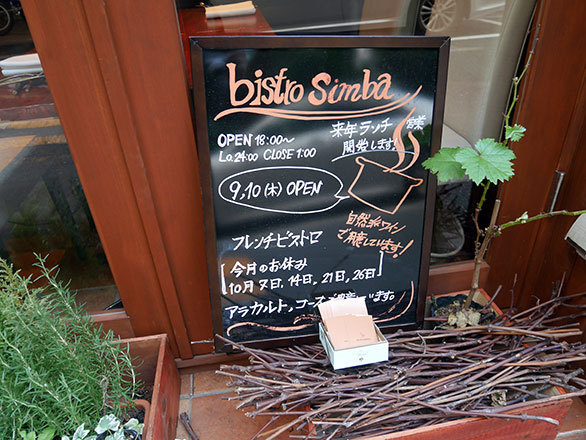 bistro Simba
OPEN 18:00〜
L.o.24:00 CLOSE 1:00
来年ランチ営業
開始します!
9,10(木)OPEN
自然派ワイン
ご用意しています!
フレンチビストロ
今月のお休み
10月7日,14日,21日,26日
アラカルト,コース います。